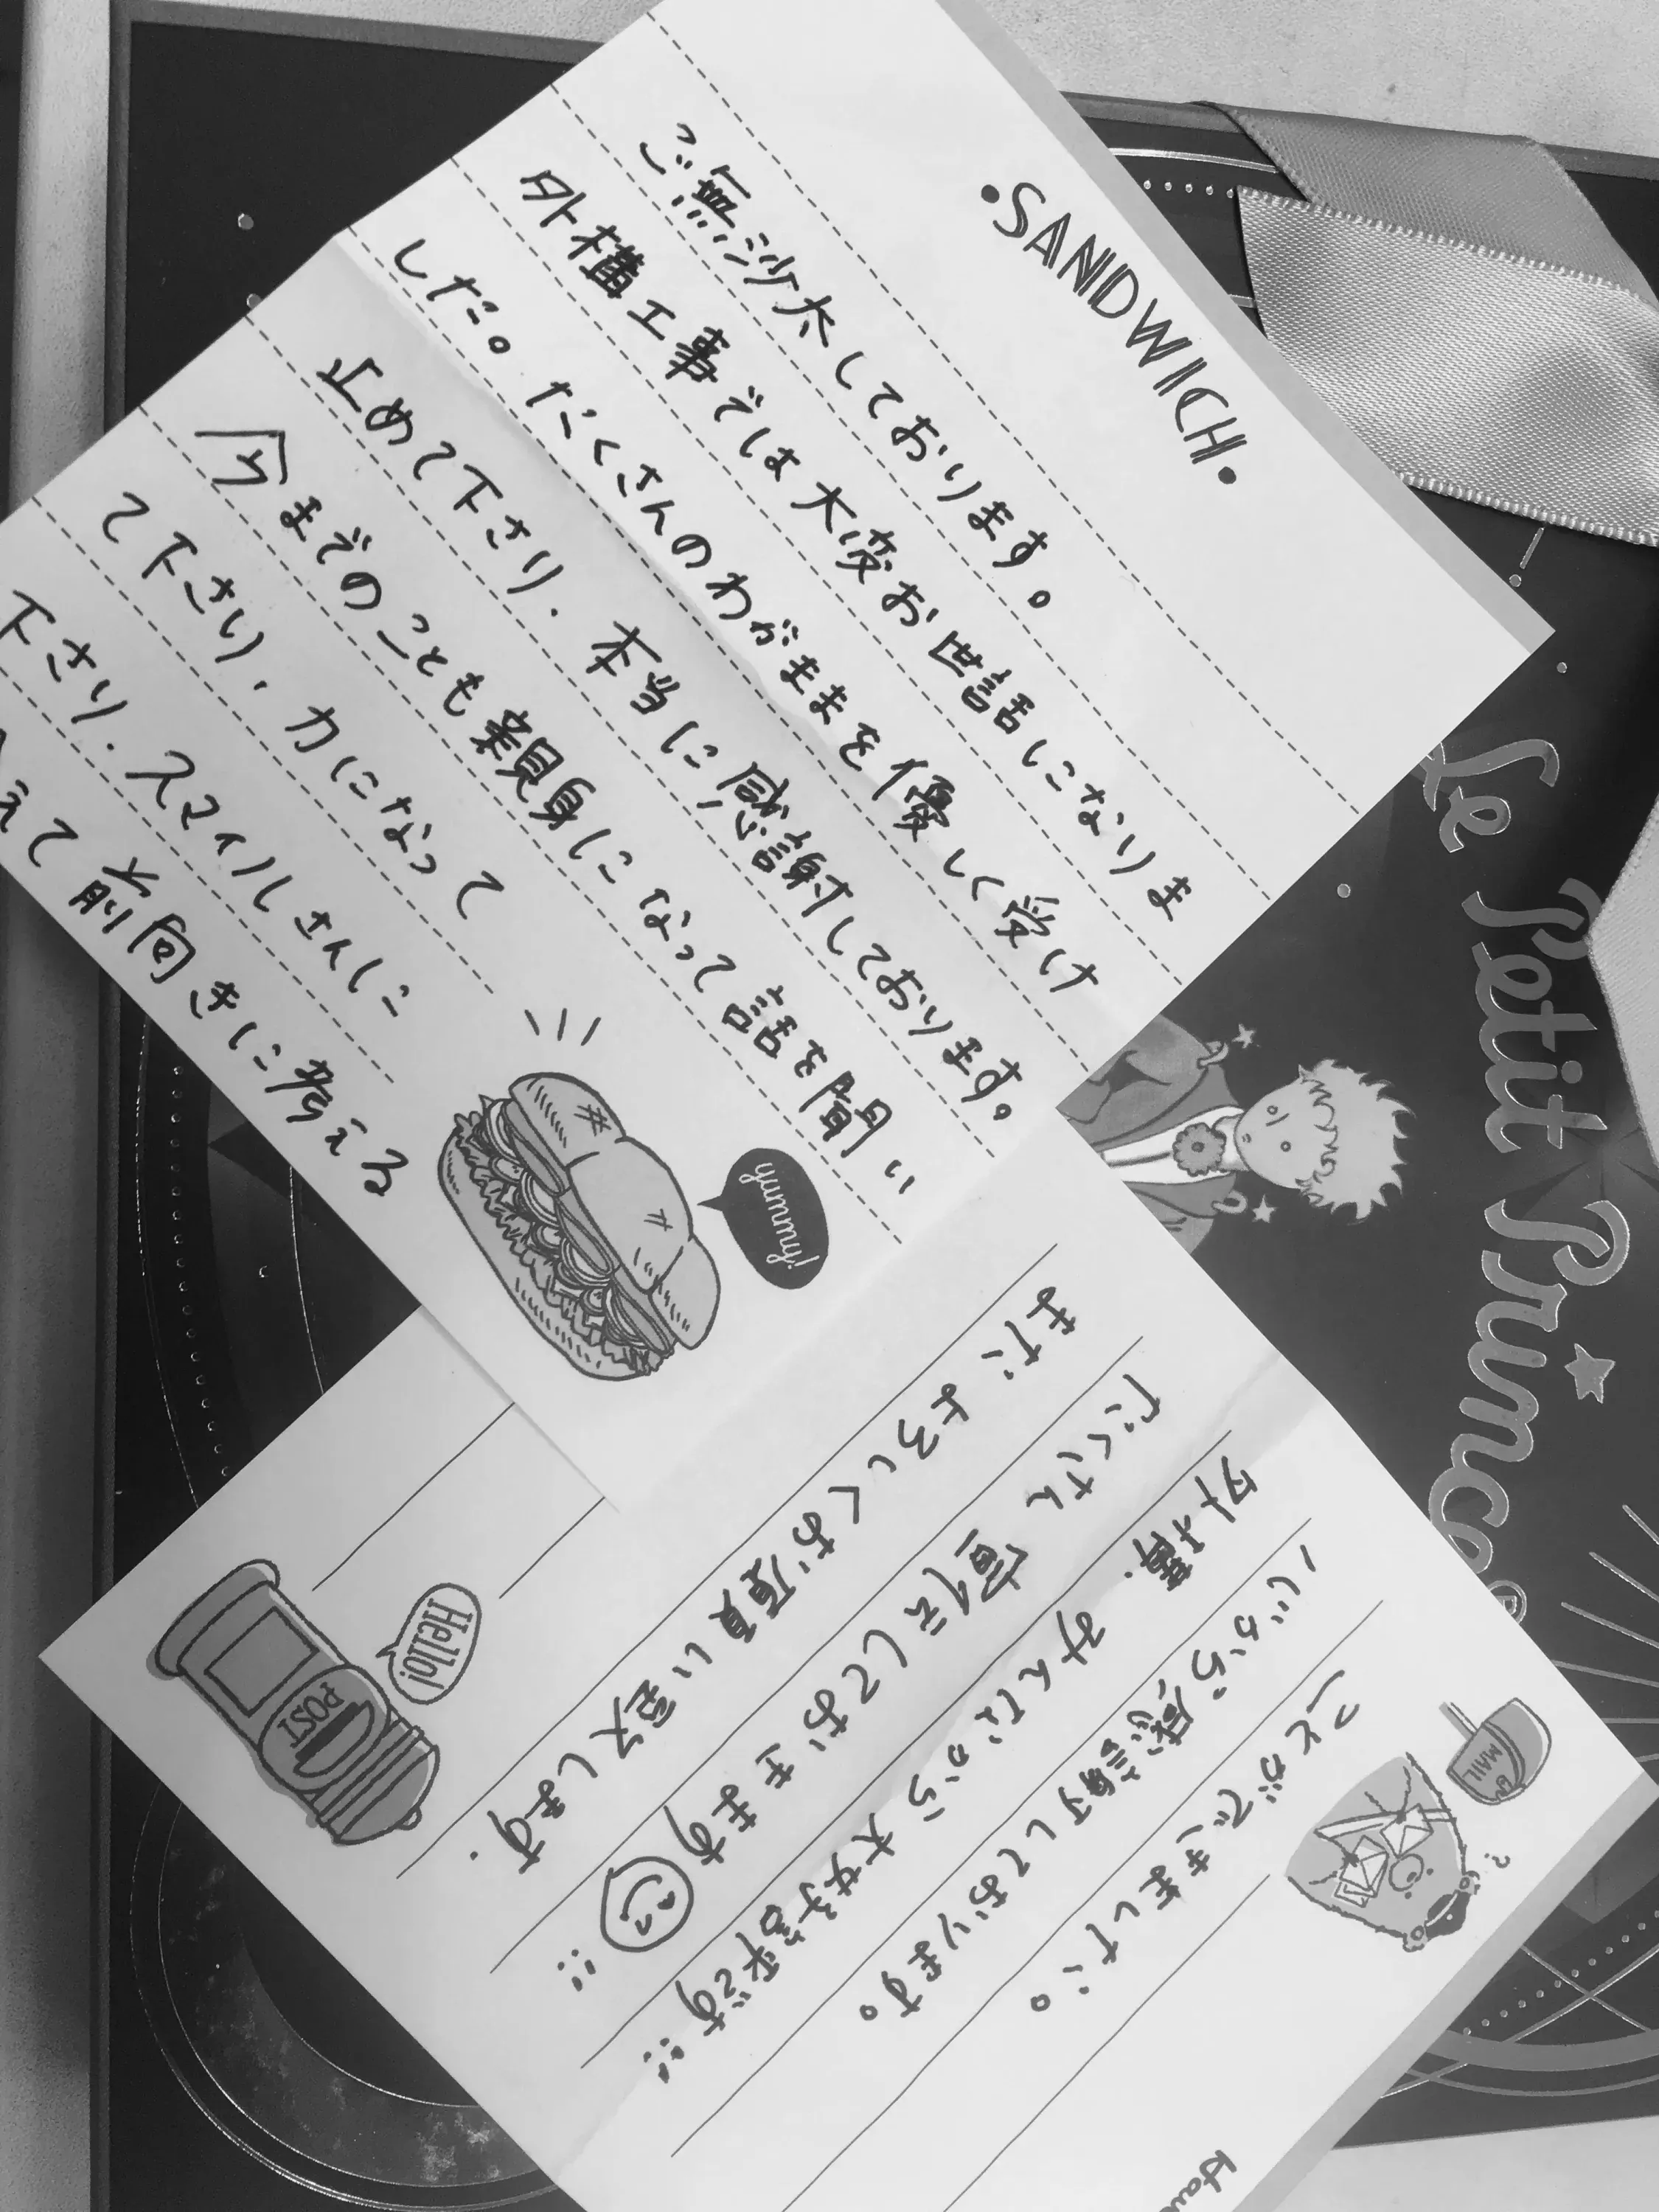 ・SANDWICH・
ご無沙太しております。
外構工事では大変お世話になりま
した。たくさんのわがままを優しく受け
止めて下さり、本当に感謝しております。
今までのことも親身になって話を聞い
て下さり、力になって
下さり、スマイルさんに
えて前向きに考える
yummy!
MAIL
ことができました。
心から感謝しております。
外構、みんなから大好評です!!
たくさん宣伝しておきます!!
またよろしくお願い致します。
Hello!
POST
Le Petit Prince